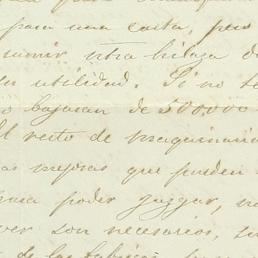 para una carta, pero
sumir otra hilaza de
su utilidad. Si no te
o bajaran de 500,000
El resto de maquinaria
as mejoras que pueden
para poder juzgar, no
ver son necesarios, su
de las fabricas